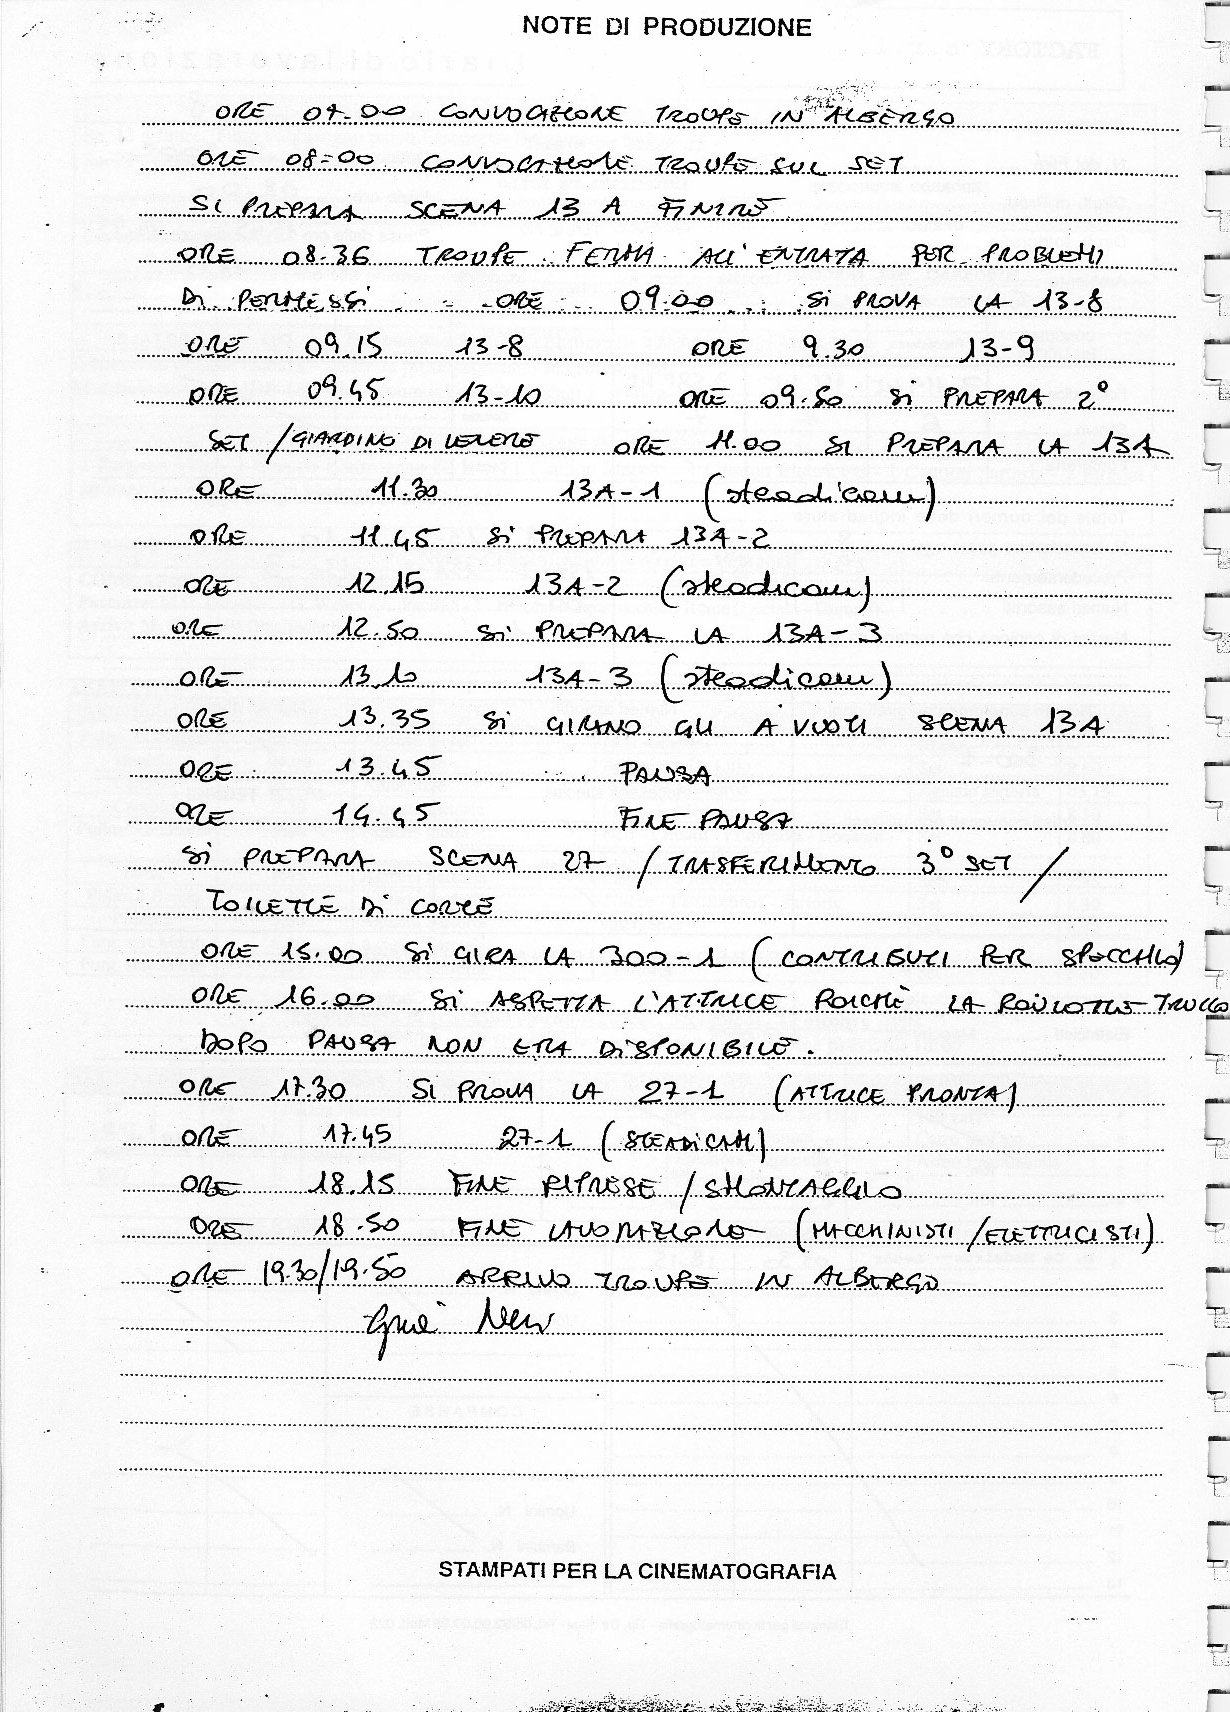 NOTE DI PRODUZIONE
ORE 07.00 CONVOCAZIONE TROUPE IN ALBERGO
ORE 08.00 CONVOCAZIONE TROUPE SUL SET
SI PREPARA SCENA 13 A FINIRE
ORE 08.36 TROUPE FERMA ALL'ENTRATA PER PROBLEMI
DI PERMESSI ORE 09.00 SI PROVA LA 13-8
ORE 09.15 13-8 ORE 9.30 13-9
ORE 09.45 13-10 ORE 09.50 SI PREPARA 2°
SET /GIARDINO DI VENERE ORE 11.00 SI PREPARA LA 13A
ORE 11.30 13A-1 (steadicam)
ORE 11.45 SI PREPARA 13A-2
ORE 12.15 13A-2 (steadicam)
ORE 12.50 SI PREPARA LA 13A-3
ORE 13.10 13A-3 (steadicam)
ORE 13.35 SI GIRANO GLI A VUOTI SCENA 13A
ORE 13.45 PAUSA
ORE 14.45 FINE PAUSA
SI PREPARA SCENA 27 / TRASFERIMENTO 3° SET /
TOILETTE DI CORTE
ORE 15.00 SI GIRA LA 300-1 (CONTRIBUTI PER SPECCHIO)
ORE 16.00 SI ASPETTA L'ATTRICE POICHÈ LA ROULOTTE TRUCCO
DOPO PAUSA NON ERA DISPONIBILE.
ORE 17.30 SI PROVA LA 27-1 (ATTRICE PRONTA)
ORE 17.45 27-1 (STEADICAM)
ORE 18.15 FINE RIPRESE / SMONTAGGIO
ORE 18.50 FINE LAVORAZIONE (MACCHINISTI /ELETTRICISTI)
ORE 19.30/19.50 ARRIVO TROUPE IN ALBERGO
STAMPATI PER LA CINEMATOGRAFIA